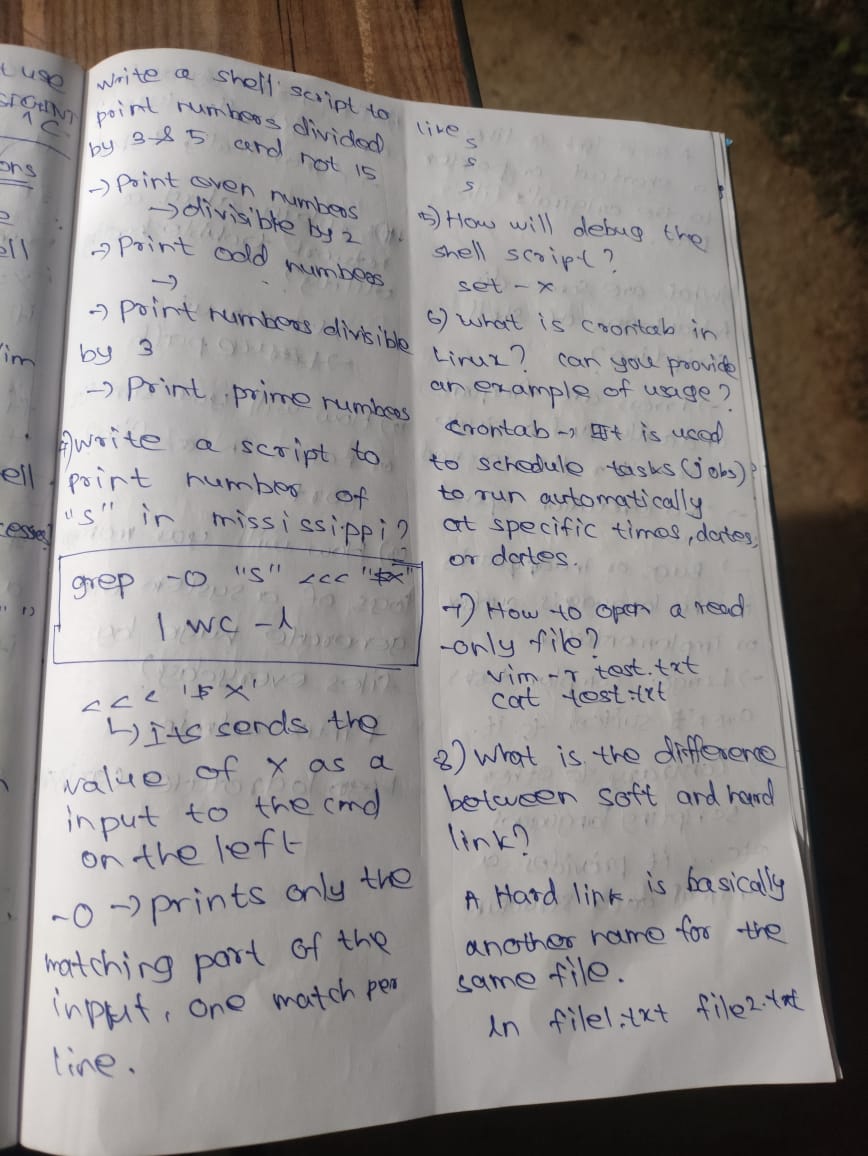 t use
1 C
ons
e
ell
Vim
ell
cesses?
write a shell script to
print numbers divided
by 3 & 5 and not 15
→ Print even numbers
→ divisible by 2
→ Print odd numbers
→
→ Print numbers divisible
by 3
→ Print prime numbers
4) write a script to
print number of
"s" in mississippi?
grep -o "s" <<< "$x"
| wc -l
<<< "$x"
↳ Its sends the
value of x as a
input to the cmd
on the left
-o → prints only the
matching part of the
input, one match per
line.
like s
s
s
5) How will debug the
shell script?
set -x
6) What is crontab in
Linux? can you provide
an example of usage?
crontab → It is used
to schedule tasks (jobs)
to run automatically
at specific times, dates,
or dates.
7) How to open a read
-only file?
vim -r test.txt
cat test.txt
8) What is the difference
between soft and hard
link?
A Hard link is basically
another name for the
same file.
ln file1.txt file2.txt